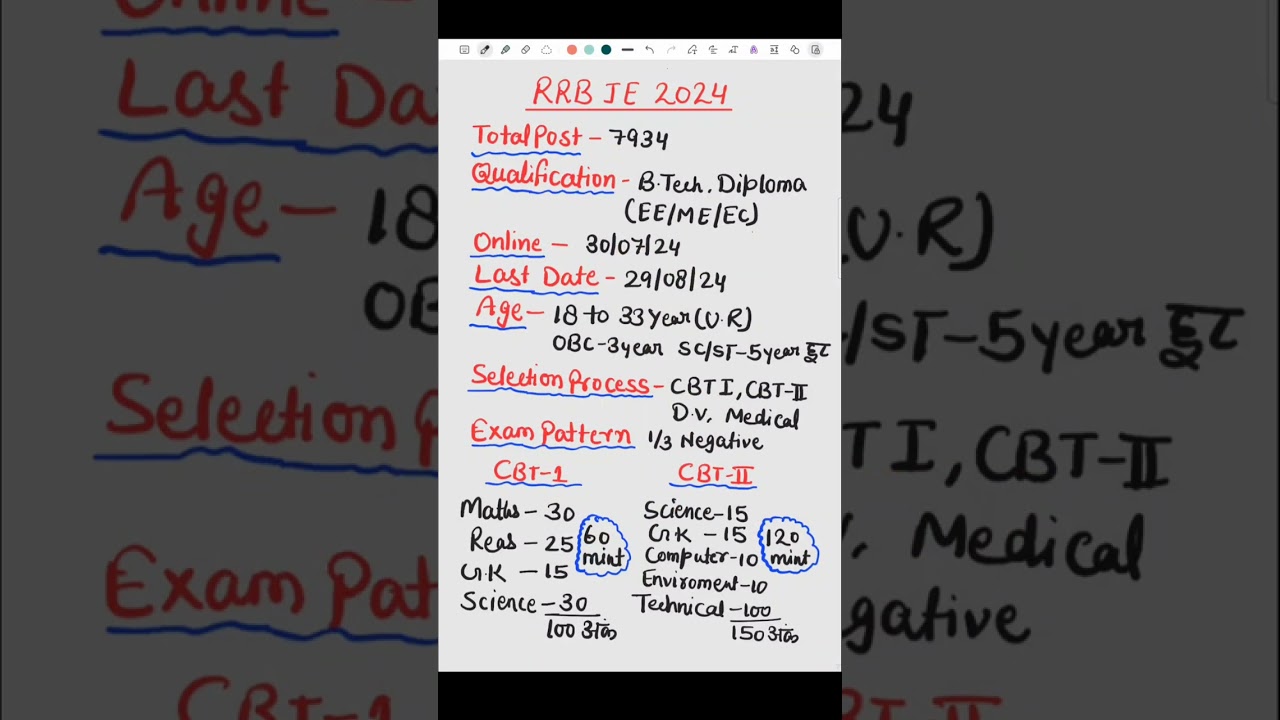 RRB JE 2024
Total Post - 7934
Qualification - B.Tech, Diploma
(EE/ME/EC)
Online - 30/07/24
Last Date - 29/08/24
Age - 18 to 33 Year (U.R)
OBC-3year SC/ST-5year छूट
Selection Process - CBT I, CBT-II
D.V, Medical
Exam Pattern 1/3 Negative
CBT-1
Maths - 30
Reas - 25
G.K - 15
Science - 30
100 अंक
60 mint
CBT-II
Science-15
G.K - 15
Computer-10
Enviroment-10
Technical-100
150 अंक
120 mint